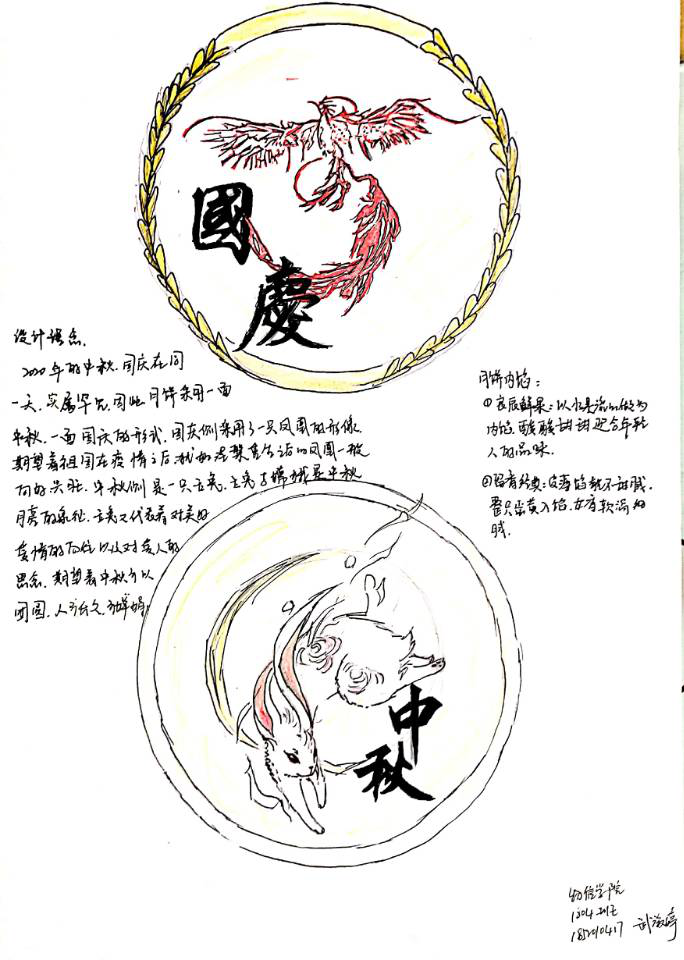 國
慶
设计理念.
2020年的中秋.国庆在同
一天,实属罕见,因此月饼采用一面
中秋.一面国庆的形式.国庆侧采用了一只凤凰的形像
期望着祖国在疫情之后犹如涅槃重生的凤凰一般
向的兴旺.中秋侧是一只玉兔.玉兔与嫦娥是中秋
月亮的象征.玉兔又代表着对美好
爱情的向往以及对亲人的
思念.期望着中秋可以
团圆.人长久.
中
秋
月饼内馅:
①良辰鲜果:以水果
内馅.酸酸甜甜迎合年轻
人的品味.
②不甜腻.
蛋黄入馅.
腻.
物信学院
1804班
185210417